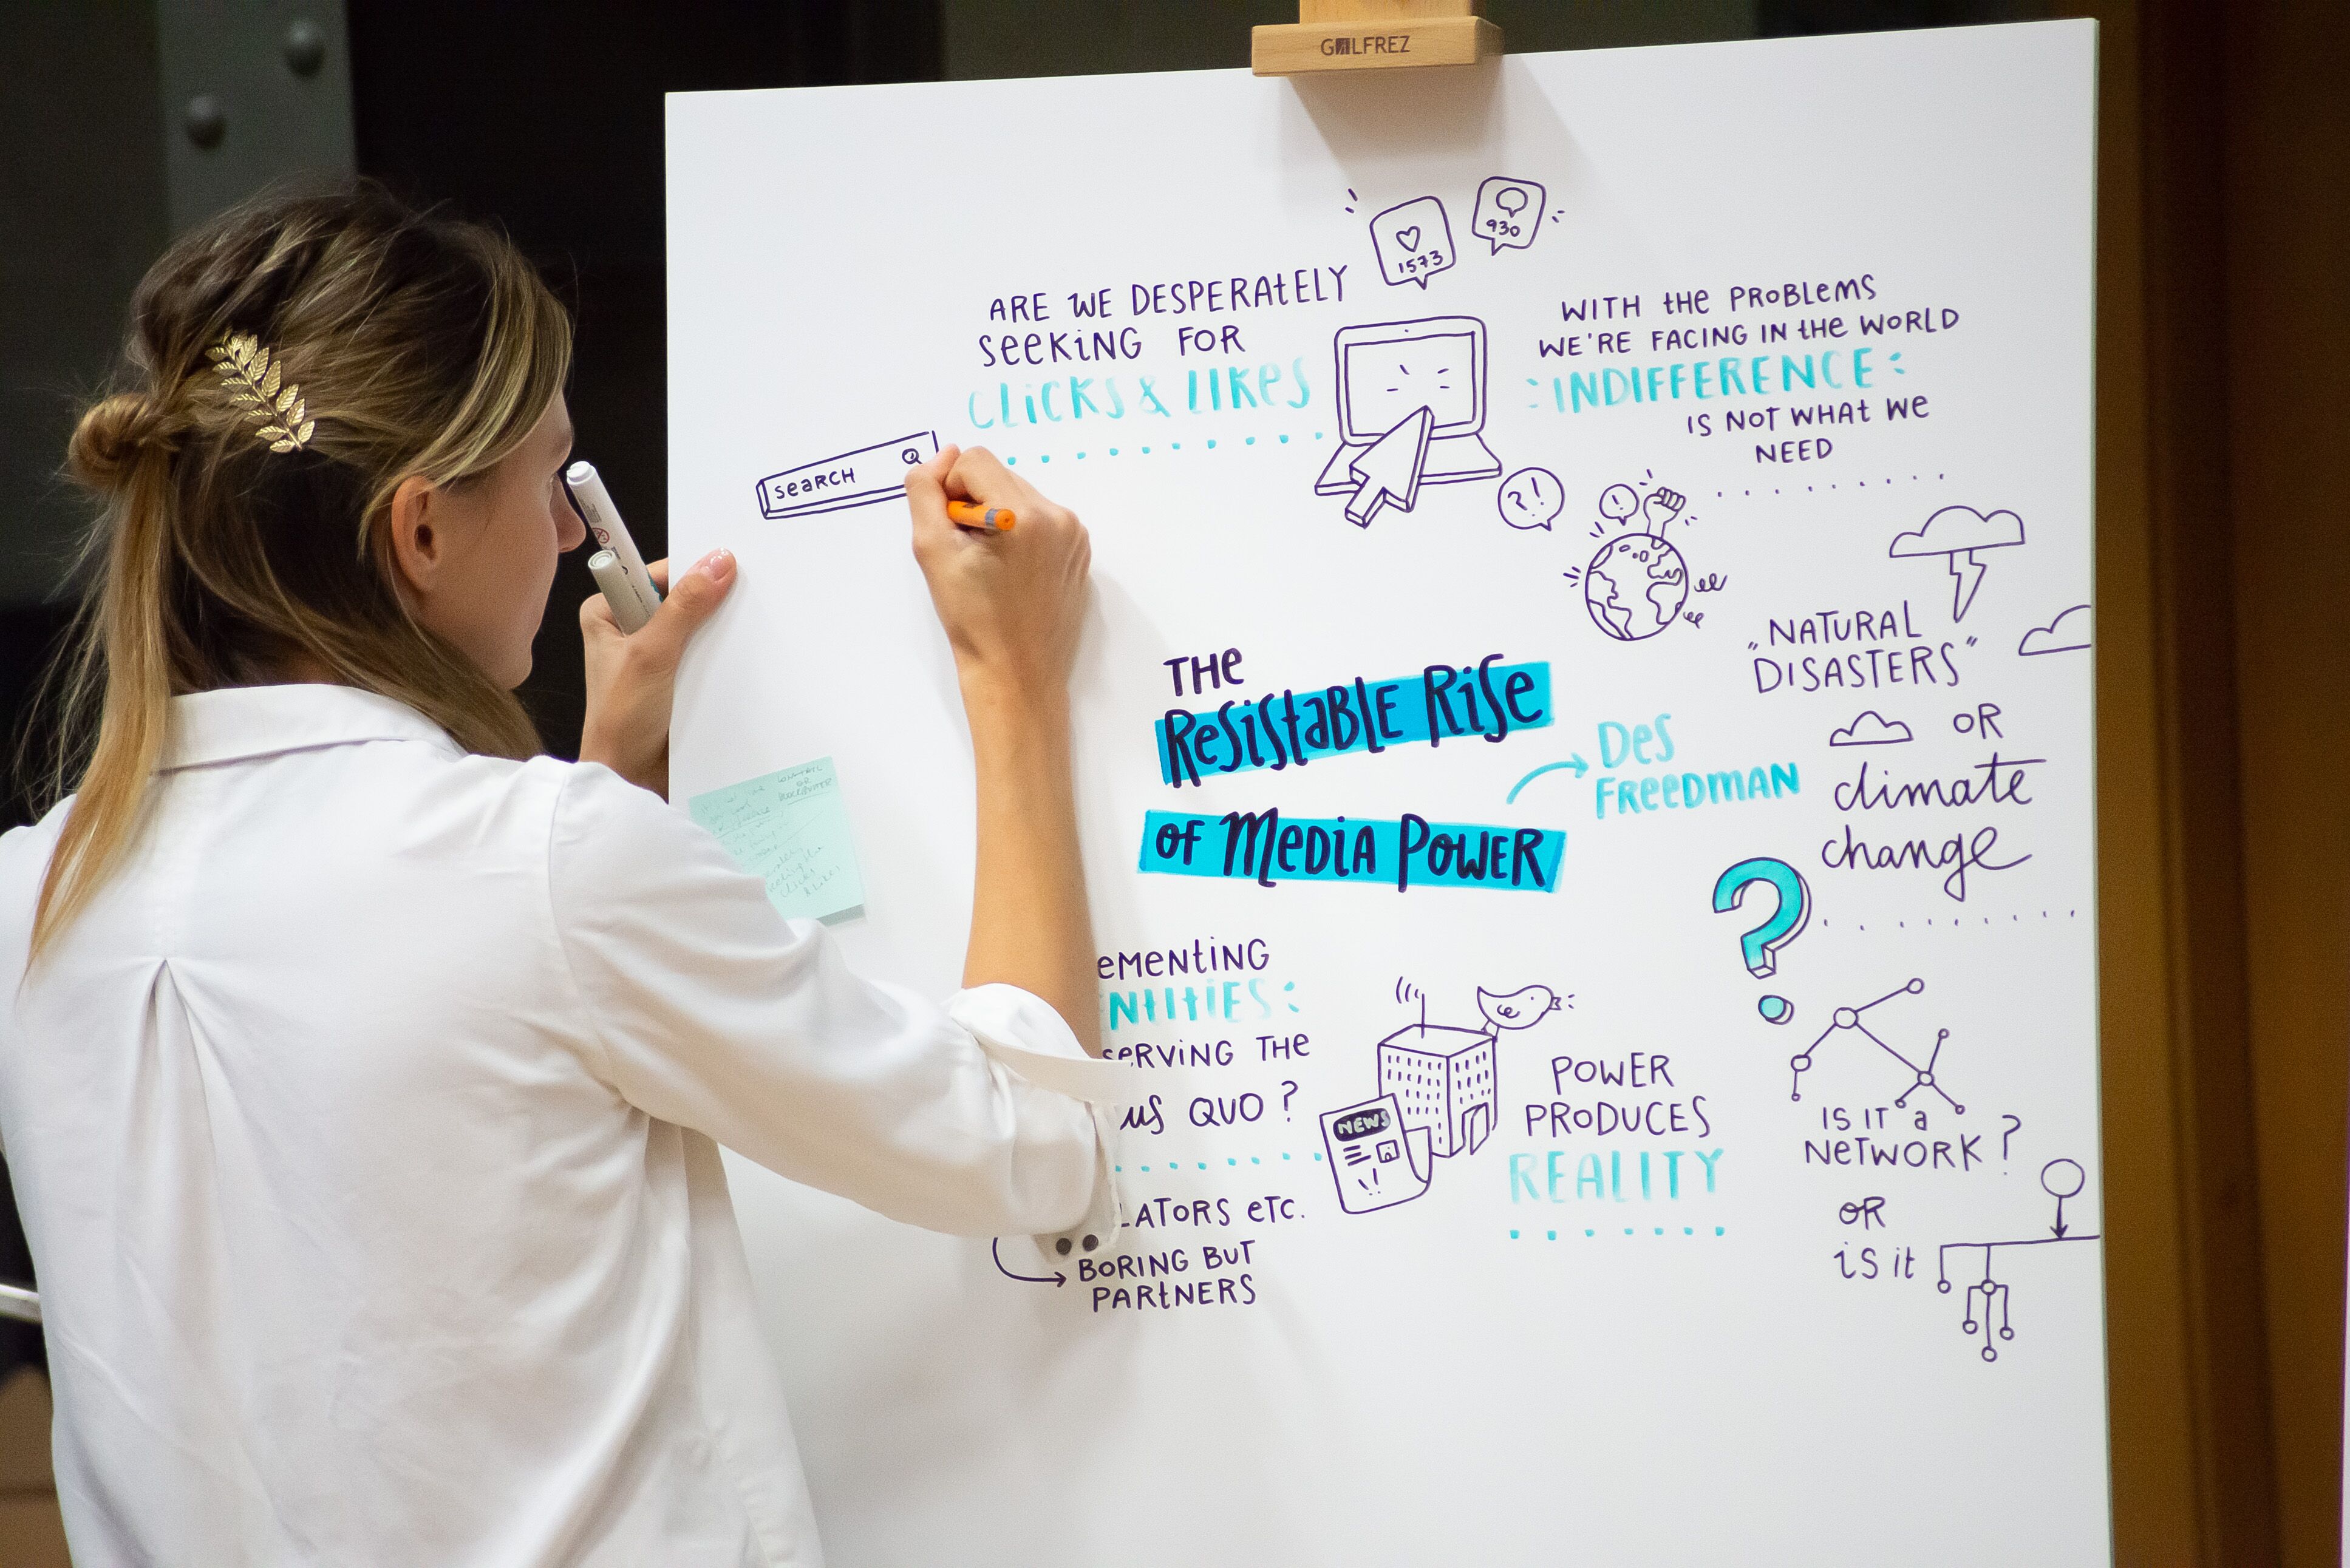 GALFREZ
1573
930
ARE WE DESPERATELY
SEEKING FOR
CLICKS & LIKES
SEARCH
WITH THE PROBLEMS
WE'RE FACING IN THE WORLD
INDIFFERENCE
IS NOT WHAT WE
NEED
?!
!
"NATURAL
DISASTERS"
OR
climate
change
?
THE
RESISTABLE RISE
OF MEDIA POWER
DES
FREEDMAN
EMENTING
NTITIES:
SERVING THE
US QUO?
LATORS ETC.
BORING BUT
PARTNERS
NEWS
POWER
PRODUCES
REALITY
IS IT a
NETWORK?
OR
is it